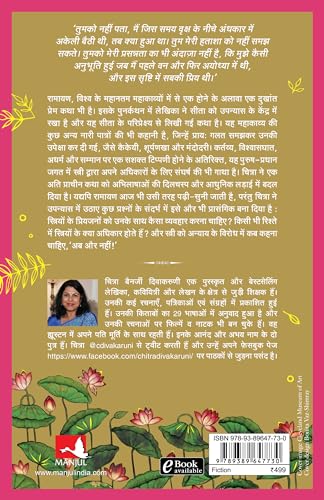 ‘तुमको नहीं पता, मैं जिस समय वृक्ष के नीचे अंधकार में
अकेली बैठी थी, तब क्या हुआ था। तुम मेरी हताशा को नहीं समझ
सकते। तुमको मेरी प्रसन्नता का भी अंदाज़ा नहीं है, कि मुझे कैसी
अनुभूति हुई जब मैं पहले वन और फिर अयोध्या में थी,
और इस सृष्टि में सबकी प्रिय थी।’
रामायण, विश्व के महानतम महाकाव्यों में से एक होने के अलावा एक दुखांत
प्रेम कथा भी है। इसके पुनर्कथन में लेखिका ने सीता को उपन्यास के केंद्र में
रखा है और यह सीता के परिप्रेक्ष्य से लिखी गई कथा है। यह महाकाव्य की
कुछ अन्य नारी पात्रों की भी कहानी है, जिन्हें प्रायः गलत समझकर उनकी
उपेक्षा कर दी गई, जैसे कैकेयी, शूर्पणखा और मंदोदरी। कर्तव्य, विश्वासघात,
अधर्म और सम्मान पर एक सशक्त टिप्पणी होने के अतिरिक्त, यह पुरुष-प्रधान
जगत में स्त्री द्वारा अपने अधिकारों के लिए संघर्ष की भी गाथा है। चित्रा ने एक
अति प्राचीन कथा को अभिलाषाओं की दिलचस्प और आधुनिक लड़ाई में बदल
दिया है। यद्यपि रामायण आज भी उसी तरह पढ़ी-सुनी जाती है, परंतु चित्रा ने
उपन्यास में उठाए कुछ प्रश्नों के संदर्भ में इसे और भी प्रासंगिक बना दिया है :
स्त्रियों के प्रियजनों को उनके साथ कैसा व्यवहार करना चाहिए? किसी भी रिश्ते
में स्त्रियों के क्या अधिकार होते हैं? और स्त्री को अन्याय के विरोध में कब कहना
चाहिए, ‘अब और नहीं!’
चित्रा बैनर्जी दिवाकरुणी एक पुरस्कृत और बेस्टसेलिंग
लेखिका, कवियित्री और लेखन के क्षेत्र से जुड़ी शिक्षक हैं।
उनकी कई रचनाएँ, पत्रिकाओं एवं संग्रहों में प्रकाशित हुई
हैं। उनकी किताबों का 29 भाषाओं में अनुवाद हुआ है और
उनकी रचनाओं पर फ़िल्में व नाटक भी बन चुके हैं। वह
ह्यूस्टन में अपने पति मूर्ति के साथ रहती हैं। इनके आनंद और अभय नाम के दो
पुत्र हैं। चित्रा @cdivakaruni से ट्वीट करती हैं और उन्हें अपने फ़ेसबुक पेज
https://www.facebook.com/chitradivakaruni/ पर पाठकों से जुड़ना पसंद है।
MANJUL
www.manjulindia.com
eBook
available
ISBN 978-93-89647-73-0
9 789389 647730
Fiction
₹499